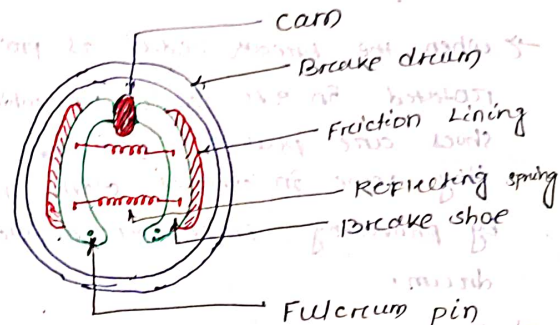 cam
Breake dreum
Friction Lining
Reflecting spring
Breake shoe
Fulcreum pin